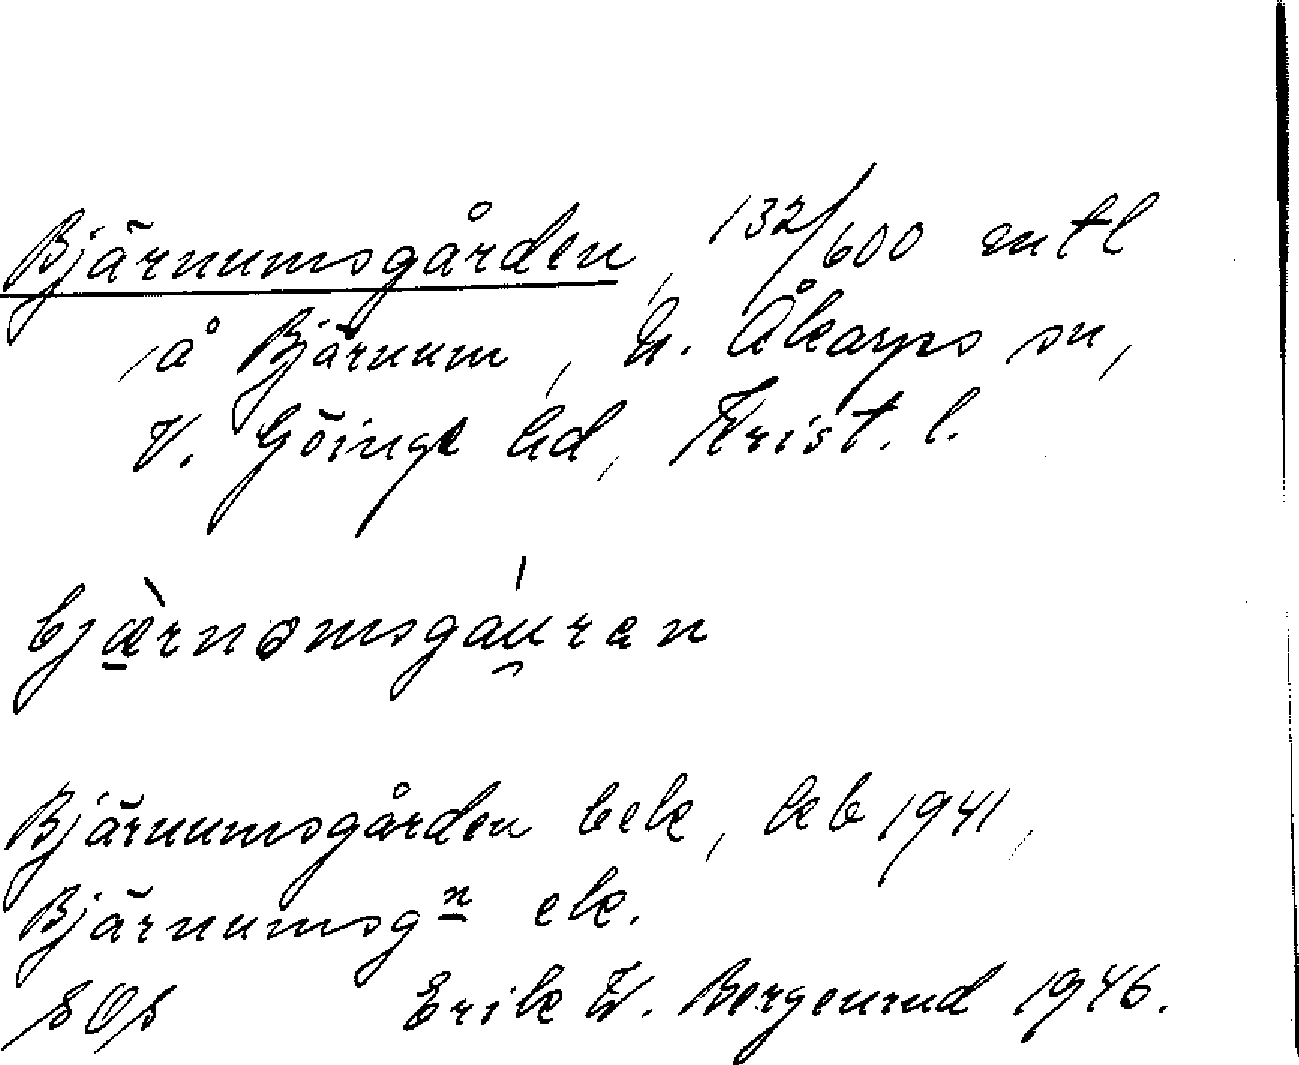 Bjärnumsgården, 132/600 mtl
å Bjärnum, N. Åkarps sn,
V. Göinge hd, Krist. l.
bjæ̠̀rnømsgáu̯ran
Bjärnumsgården bek, kb 1941,
Bjärnumsgn ek.
Erik W. Bergenrud 1946.